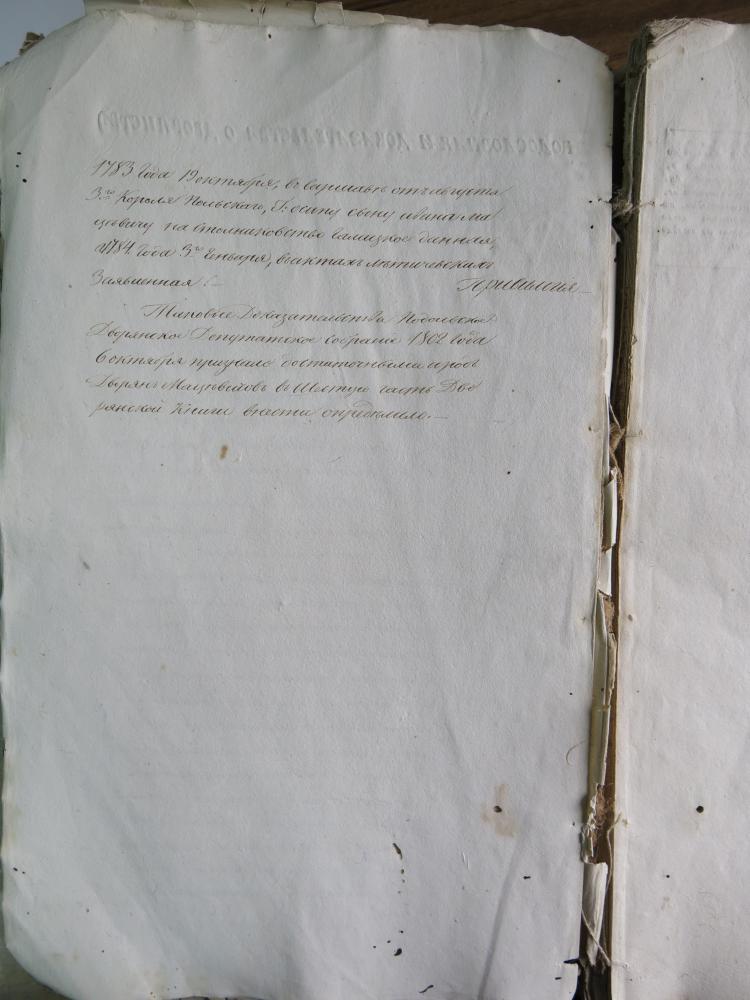 1783 Года 19 октября, в Варшаве от Августа
3го Короля Польскаго, Иосипу сыну Ивана Ма
цевичу на Столниковство Галицкое данная,
1784 Года 3го Генваря, в актах Летичевских
Заявленная. – Привилегия –
Таковые Доказательства Подольское
Дворянское Депутатское собрание 1802 Года
6 октября признало достаточными и род
Дворян Мацевичов в Шестую часть Дво
рянской Книги внести определило. –